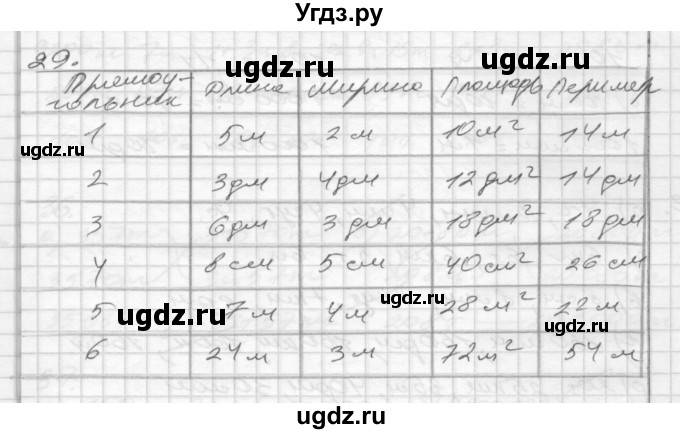 Угдз.ру
29.
Прямоу- Длина Ширина Площадь Пеример
гольник
1 5 м 2 м 10 м² 14 м
2 3 дм 4 дм 12 дм² 14 дм
3 6 дм 3 дм 18 дм² 18 дм
4 8 см 5 см 40 см² 26 см
5 7 м 4 м 28 м² 22 м
6 24 м 3 м 72 м² 54 м
ugdz.ru
ugdz.ru
ugdz.ru
ugdz.ru
ugdz.ru
ugdz.ru
ugdz.ru
ugdz.ru